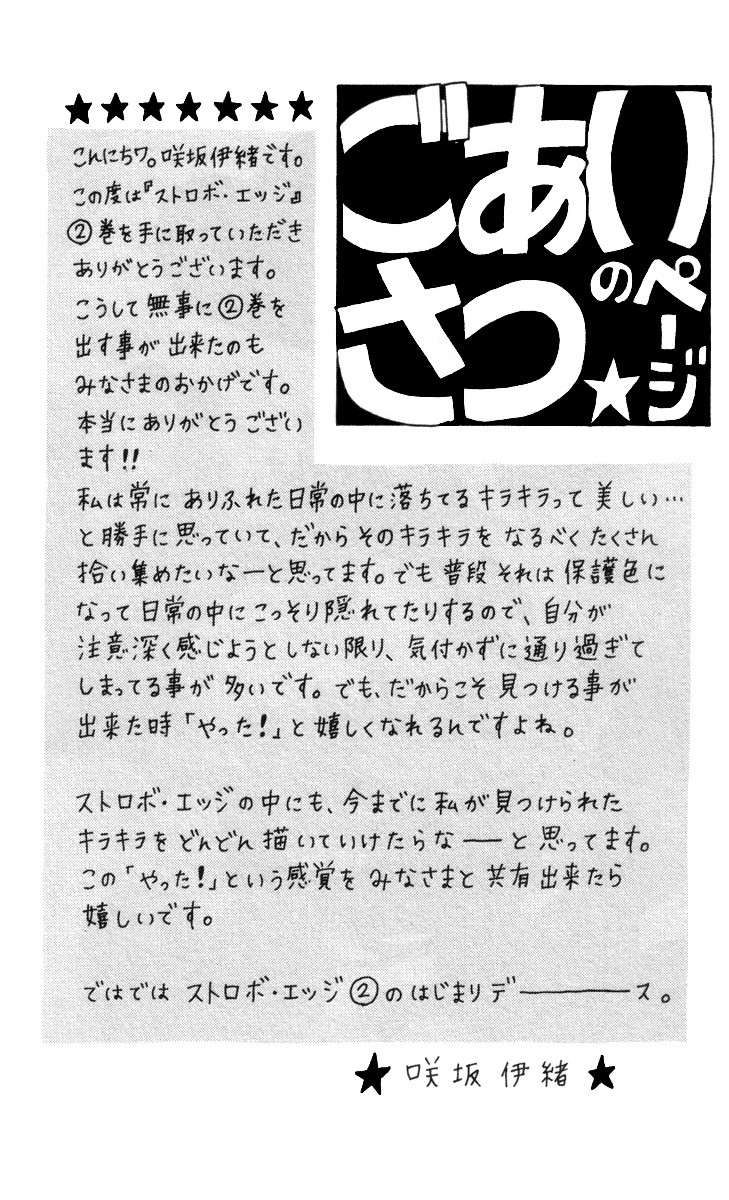 ごあいさつ
のページ★
★★★★★★★
こんにちワ。咲坂伊緒です。
この度は『ストロボ・エッジ』
②巻を手に取っていただき
ありがとうございます。
こうして無事に②巻を
出す事が出来たのも
みなさまのおかげです。
本当にありがとうござい
ます!!
私は常にありふれた日常の中に落ちてるキラキラって美しい…
と勝手に思っていて、だからそのキラキラをなるべくたくさん
拾い集めたいなーと思ってます。でも普段それは保護色に
なって日常の中にこっそり隠れてたりするので、自分が
注意深く感じようとしない限り、気付かずに通り過ぎて
しまってる事が多いです。でも、だからこそ見つける事が
出来た時「やった!」と嬉しくなれるんですよね。
ストロボ・エッジの中にも、今までに私が見つけられた
キラキラをどんどん描いていけたらな──と思ってます。
この「やった!」という感覚をみなさまと共有出来たら
嬉しいです。
ではでは ストロボ・エッジ②のはじまりデ─────ス。
★ 咲坂伊緒 ★